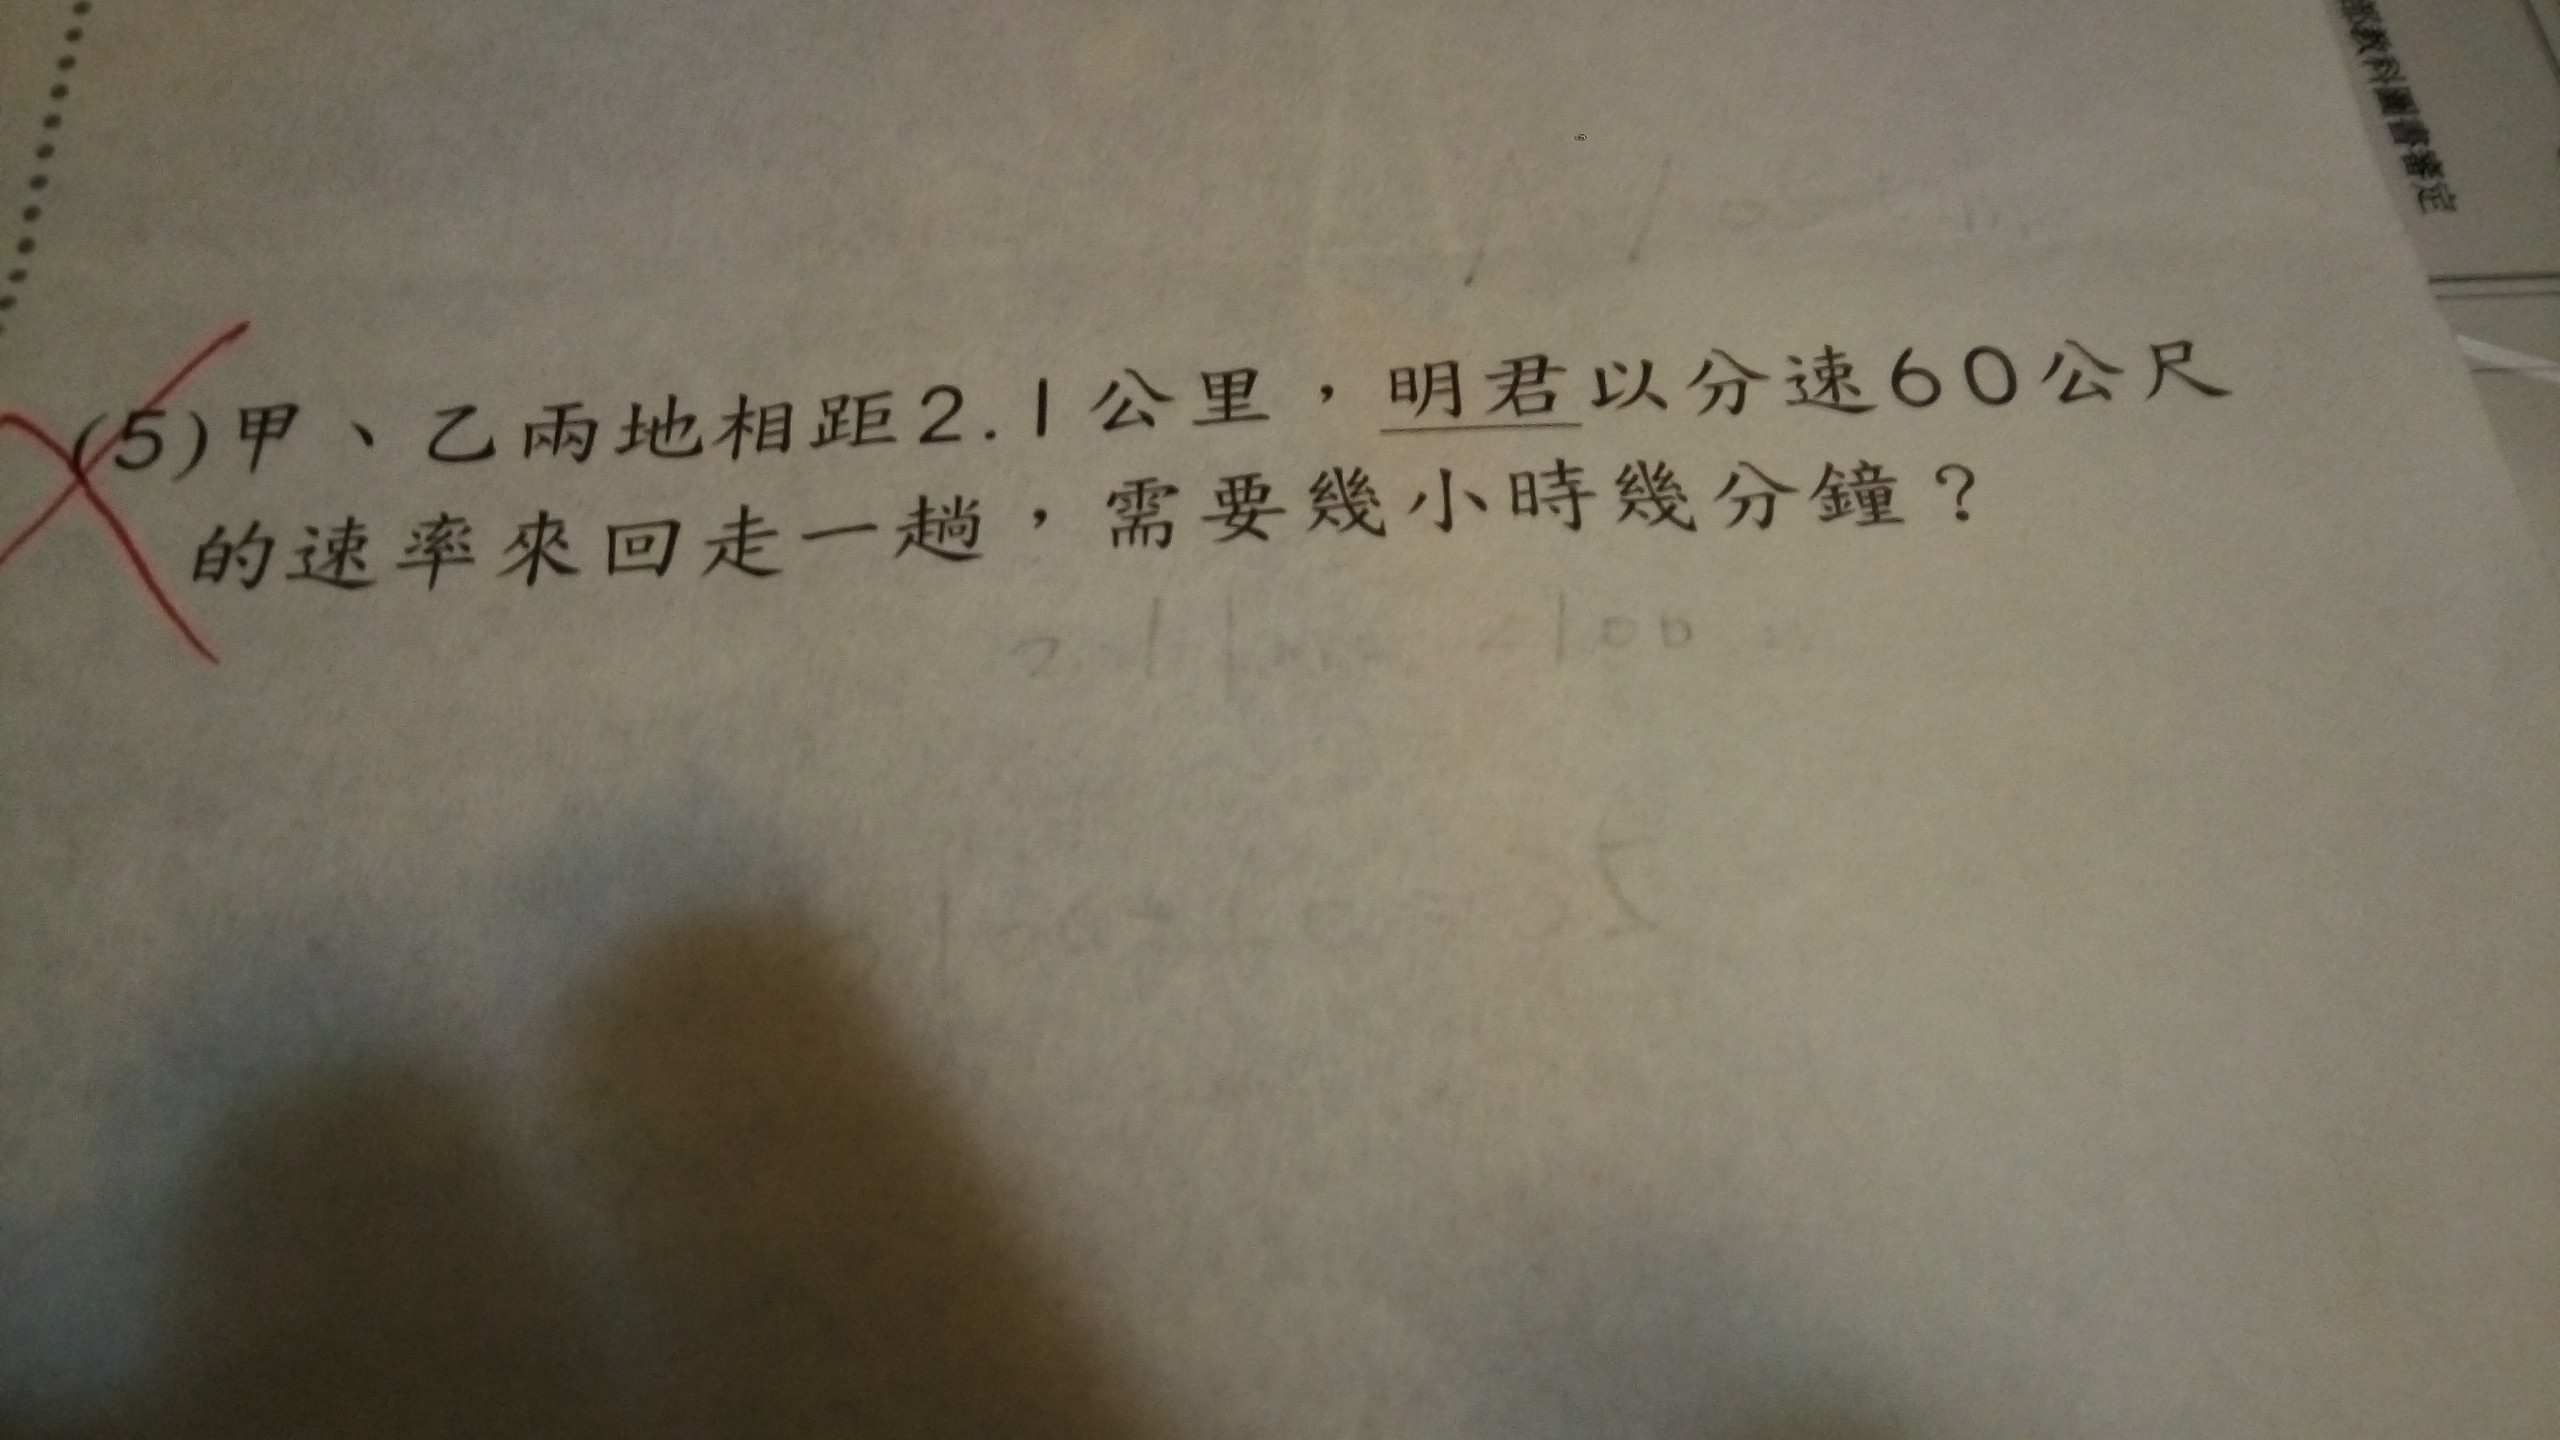 教科圖書審定
(5)甲、乙兩地相距2.1公里，明君以分速60公尺
的速率來回走一趟，需要幾小時幾分鐘？
2.1km=2100
2100÷60=35